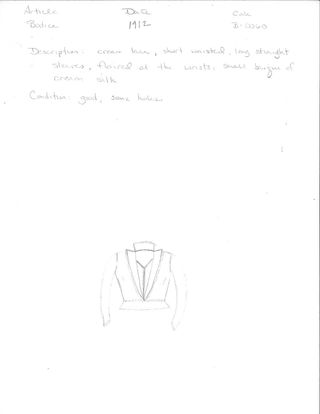 Article Date Code
Bodice 1912 B-0060
Description: cream lace, short waisted, long straight
sleeves, flaired at the wrists, small of
cream silk
Condition: good, some holes